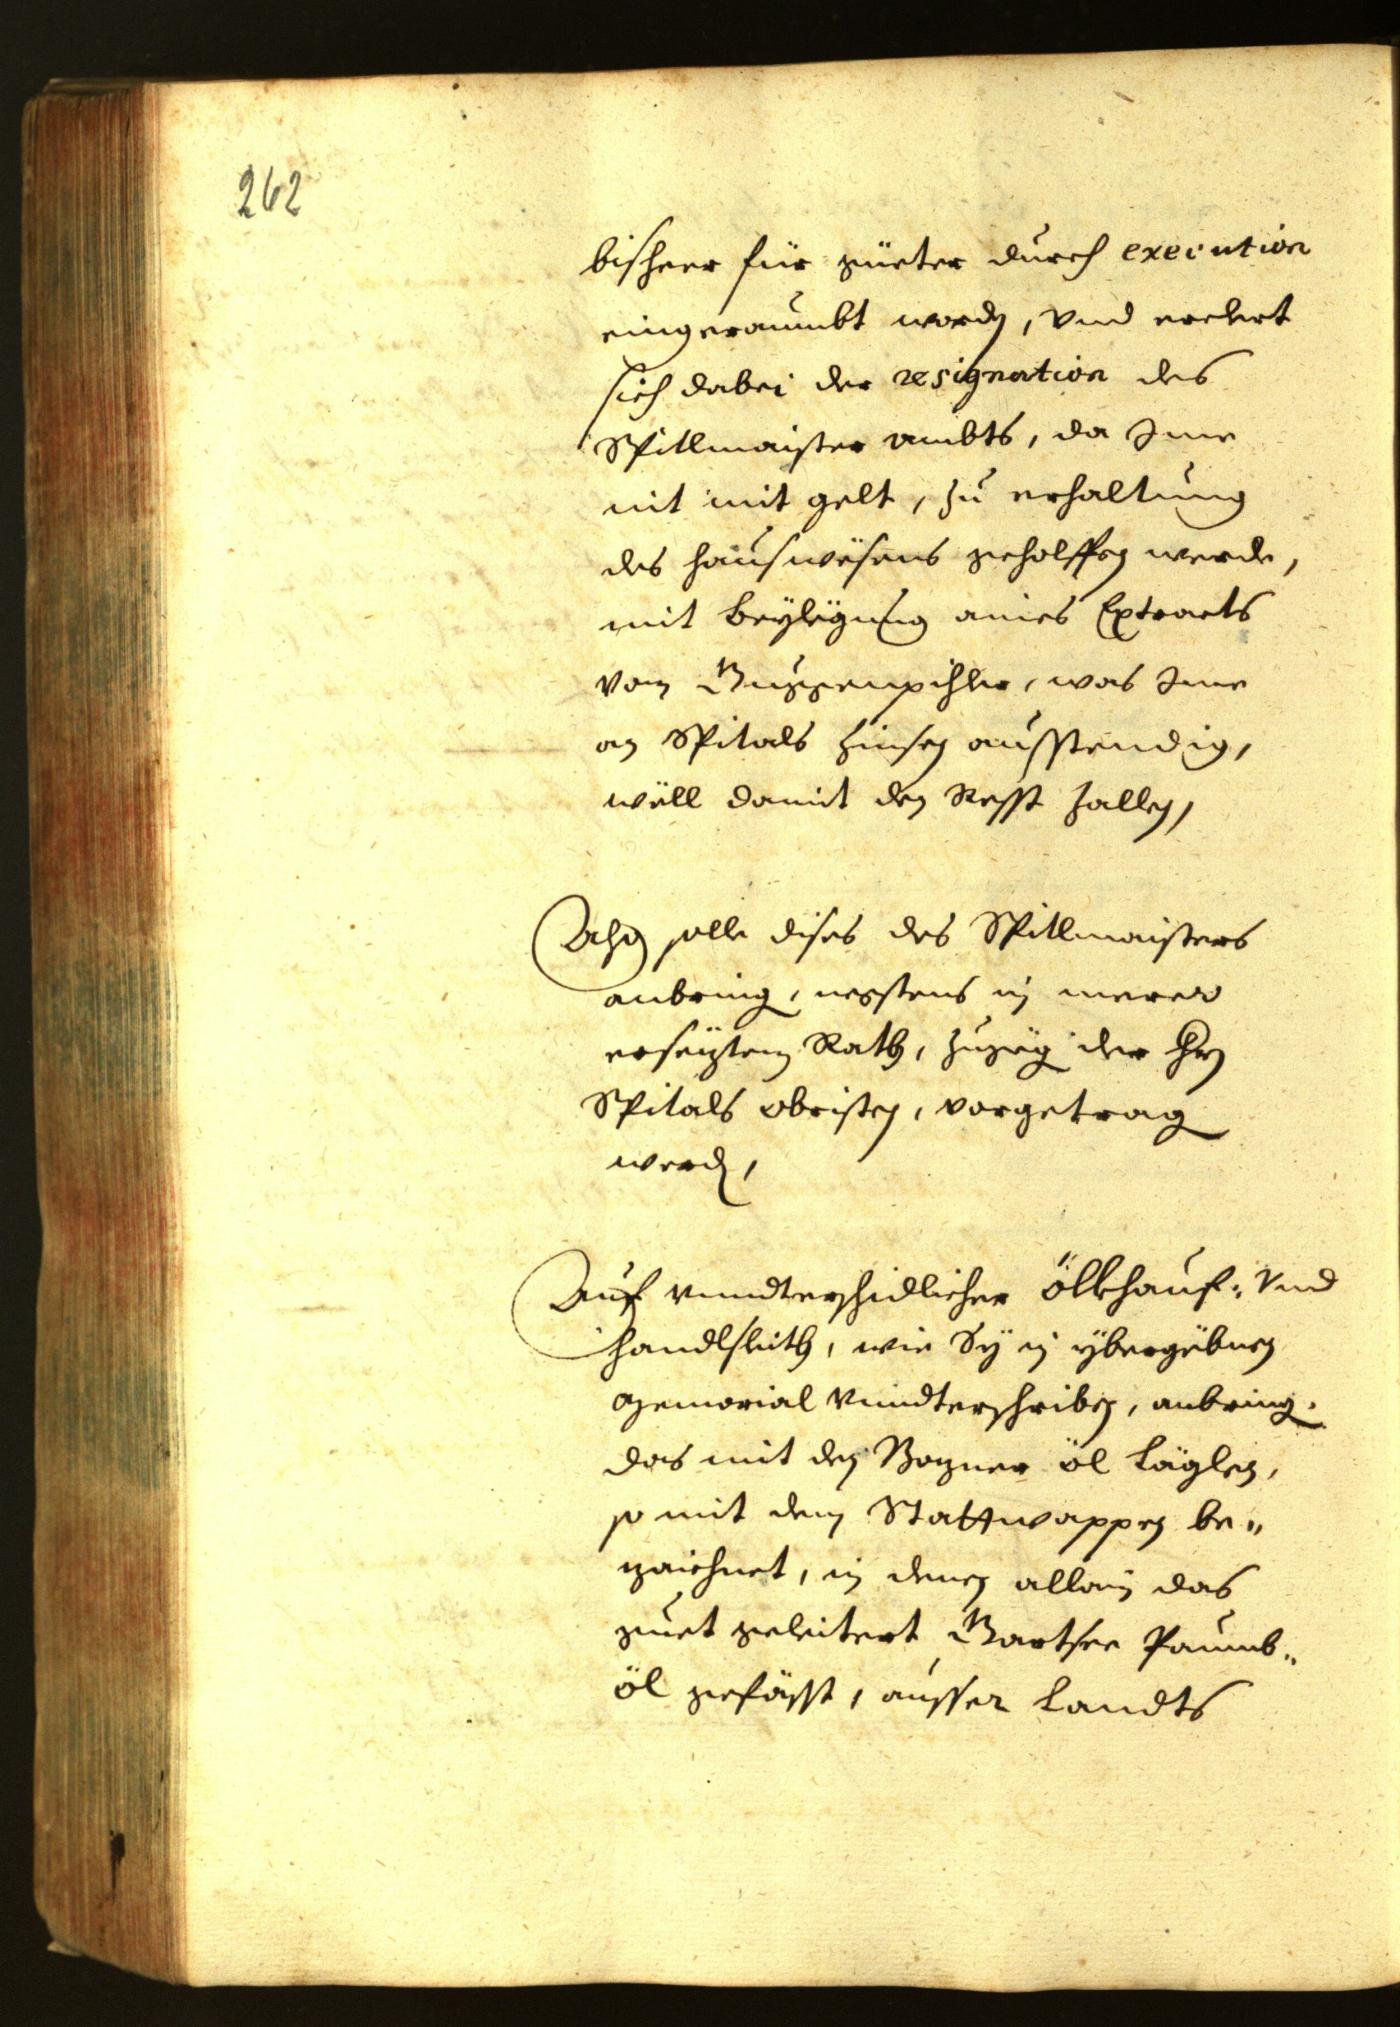 262
bisheer für güeter durch execution
eingeraumbt worden, Vnd erclert
sich dabei der resignation des
Spitlmaister ambts, da Ime
nit mit gelt, zu erhaltung
des hauswësens geholffen werde,
mit beÿlëgung aines Extracts
von Guggenpihler, was Ime
an Spitals zinsen ausstendig,
wëll damit den Resst zallen,
Ahn solle dises des Spitlmaisters
anbring, negstens in merer
ersëztem Rath, zugëg der Hrn
Spitals obristen, vorgetrag
werden,
Auf vnndterschidlicher ölkhauf: Vnd
handlsleith, wie Sÿ in ÿbergëbnen
memorial vnndterschriben, anbring.
das mit den Bozner öl Läglen,
so mit dem Stattwappen be„
zaichnet, in denen allain das
guet geleitert Gartsee Paumb„
öl gefässt, ausser Landts